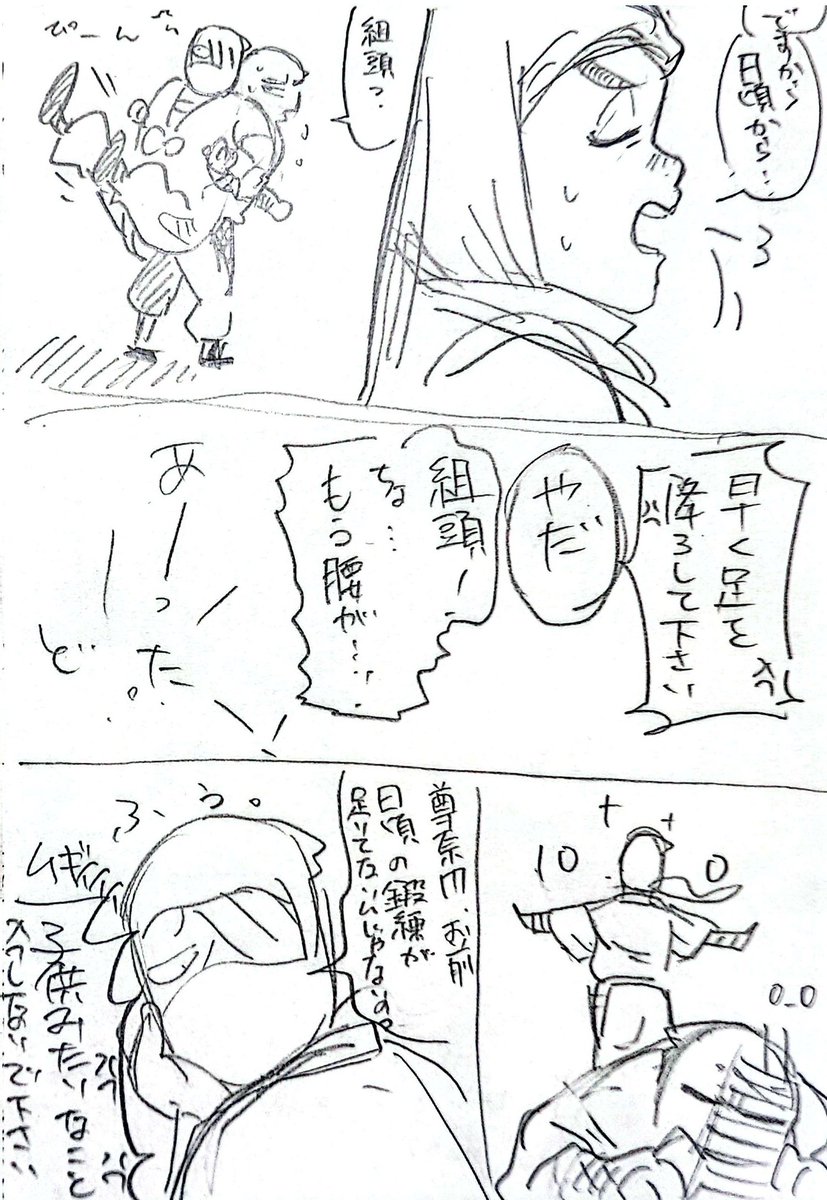 ですから
日頃から…
組頭？
ぴーん
早く足を
降ろして下さい
やだ
組頭ー！
ちょ…
もう腰が…
あーった
ど
10
0
0_0
尊奈门、お前
日頃の鍛練が
足りてないんじゃないの？
ふぅ。
ムギ
子供みたいなこと
しないで下さい